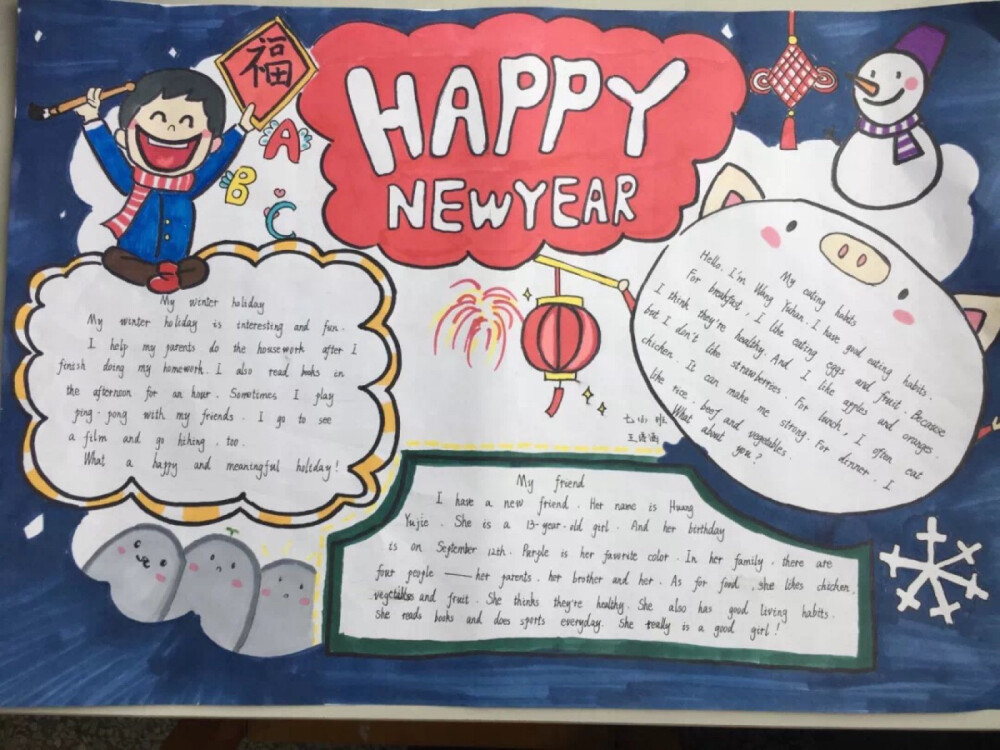 福
HAPPY
NEWYEAR
A
B
C
My winter holiday
My winter holiday is interesting and fun.
I help my parents do the housework after I
finish doing my homework. I also read books in
the afternoon for an hour. Sometimes I play
ping-pong with my friends. I go to see
a film and go hiking, too.
What a happy and meaningful holiday!
My eating habits
Hello, I'm Wang Yuhan. I have good eating habits.
For breakfast, I like eating eggs and fruit. Because
I think they're healthy. And I like apples and oranges.
but I don't like strawberries. For lunch, I often eat
chicken. It can make me strong. For dinner, I
like rice, beef and vegetables.
What about you?
班
王
My friend
I have a new friend. Her name is Huang
Yujie. She is a 13-year-old girl. And her birthday
is on September 12th. Purple is her favorite color. In her family, there are
four people —— her parents, her brother and her. As for food, she likes chicken,
vegetables and fruit. She thinks they're healthy. She also has good living habits.
She reads books and does sports everyday. She really is a good girl!